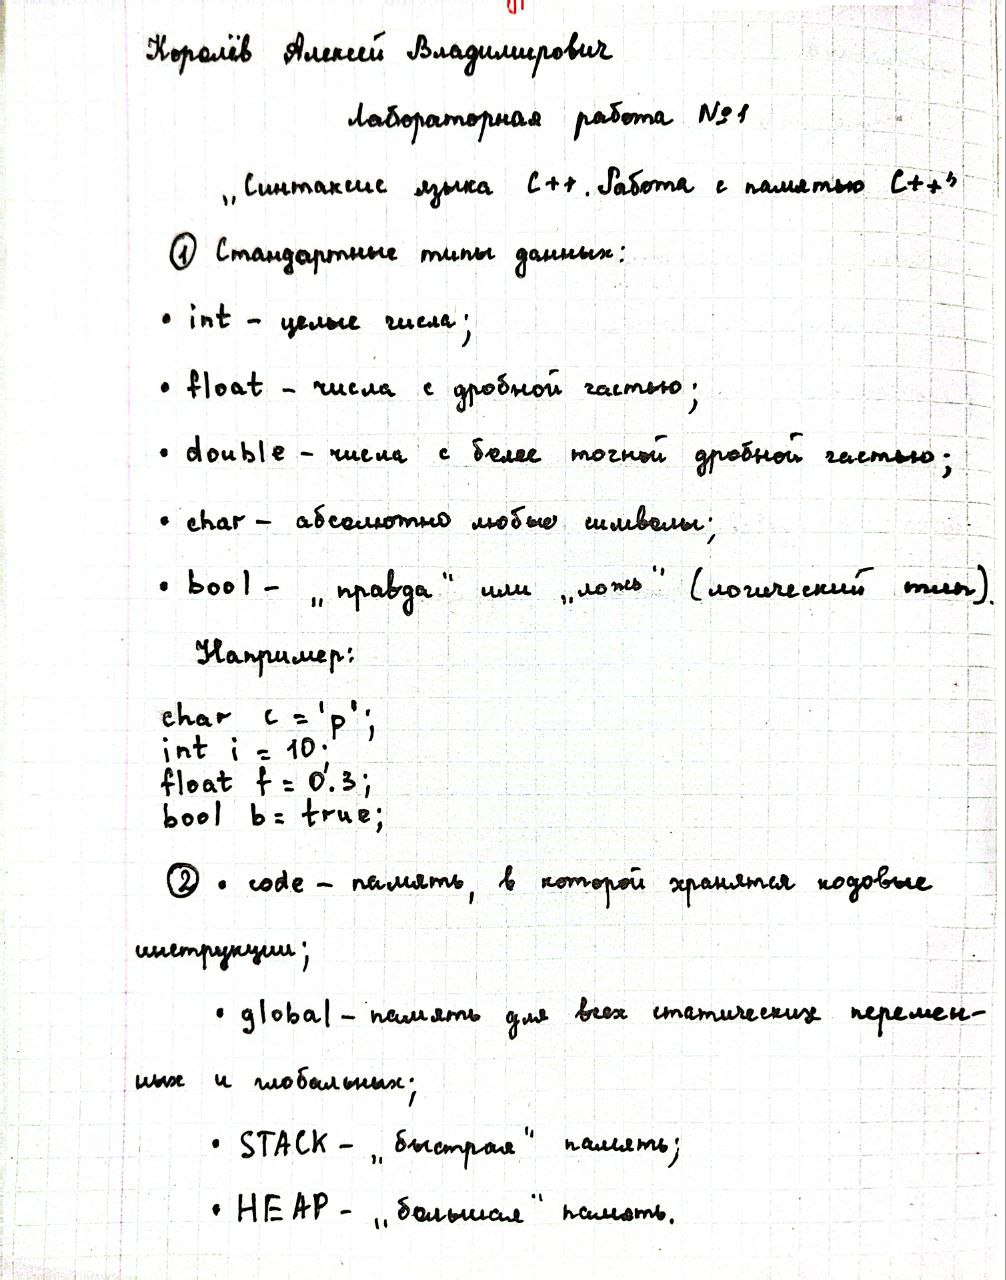 Королёв Алексей Владимирович
Лабораторная работа №1
„Синтаксис языка C++. Работа с памятью C++"
① Стандартные типы данных:
• int – целые числа;
• float – числа с дробной частью;
• double – числа с более точной дробной частью;
• char – абсолютно любые символы;
• bool – „правда" или „ложь" (логический тип).
Например:
char c = 'p';
int i = 10;
float f = 0.3;
bool b = true;
② • code – память, в которой хранятся кодовые
инструкции;
• global – память для всех статических перемен-
ных и глобальных;
• STACK – „быстрая" память;
• HEAP – „большая" память.